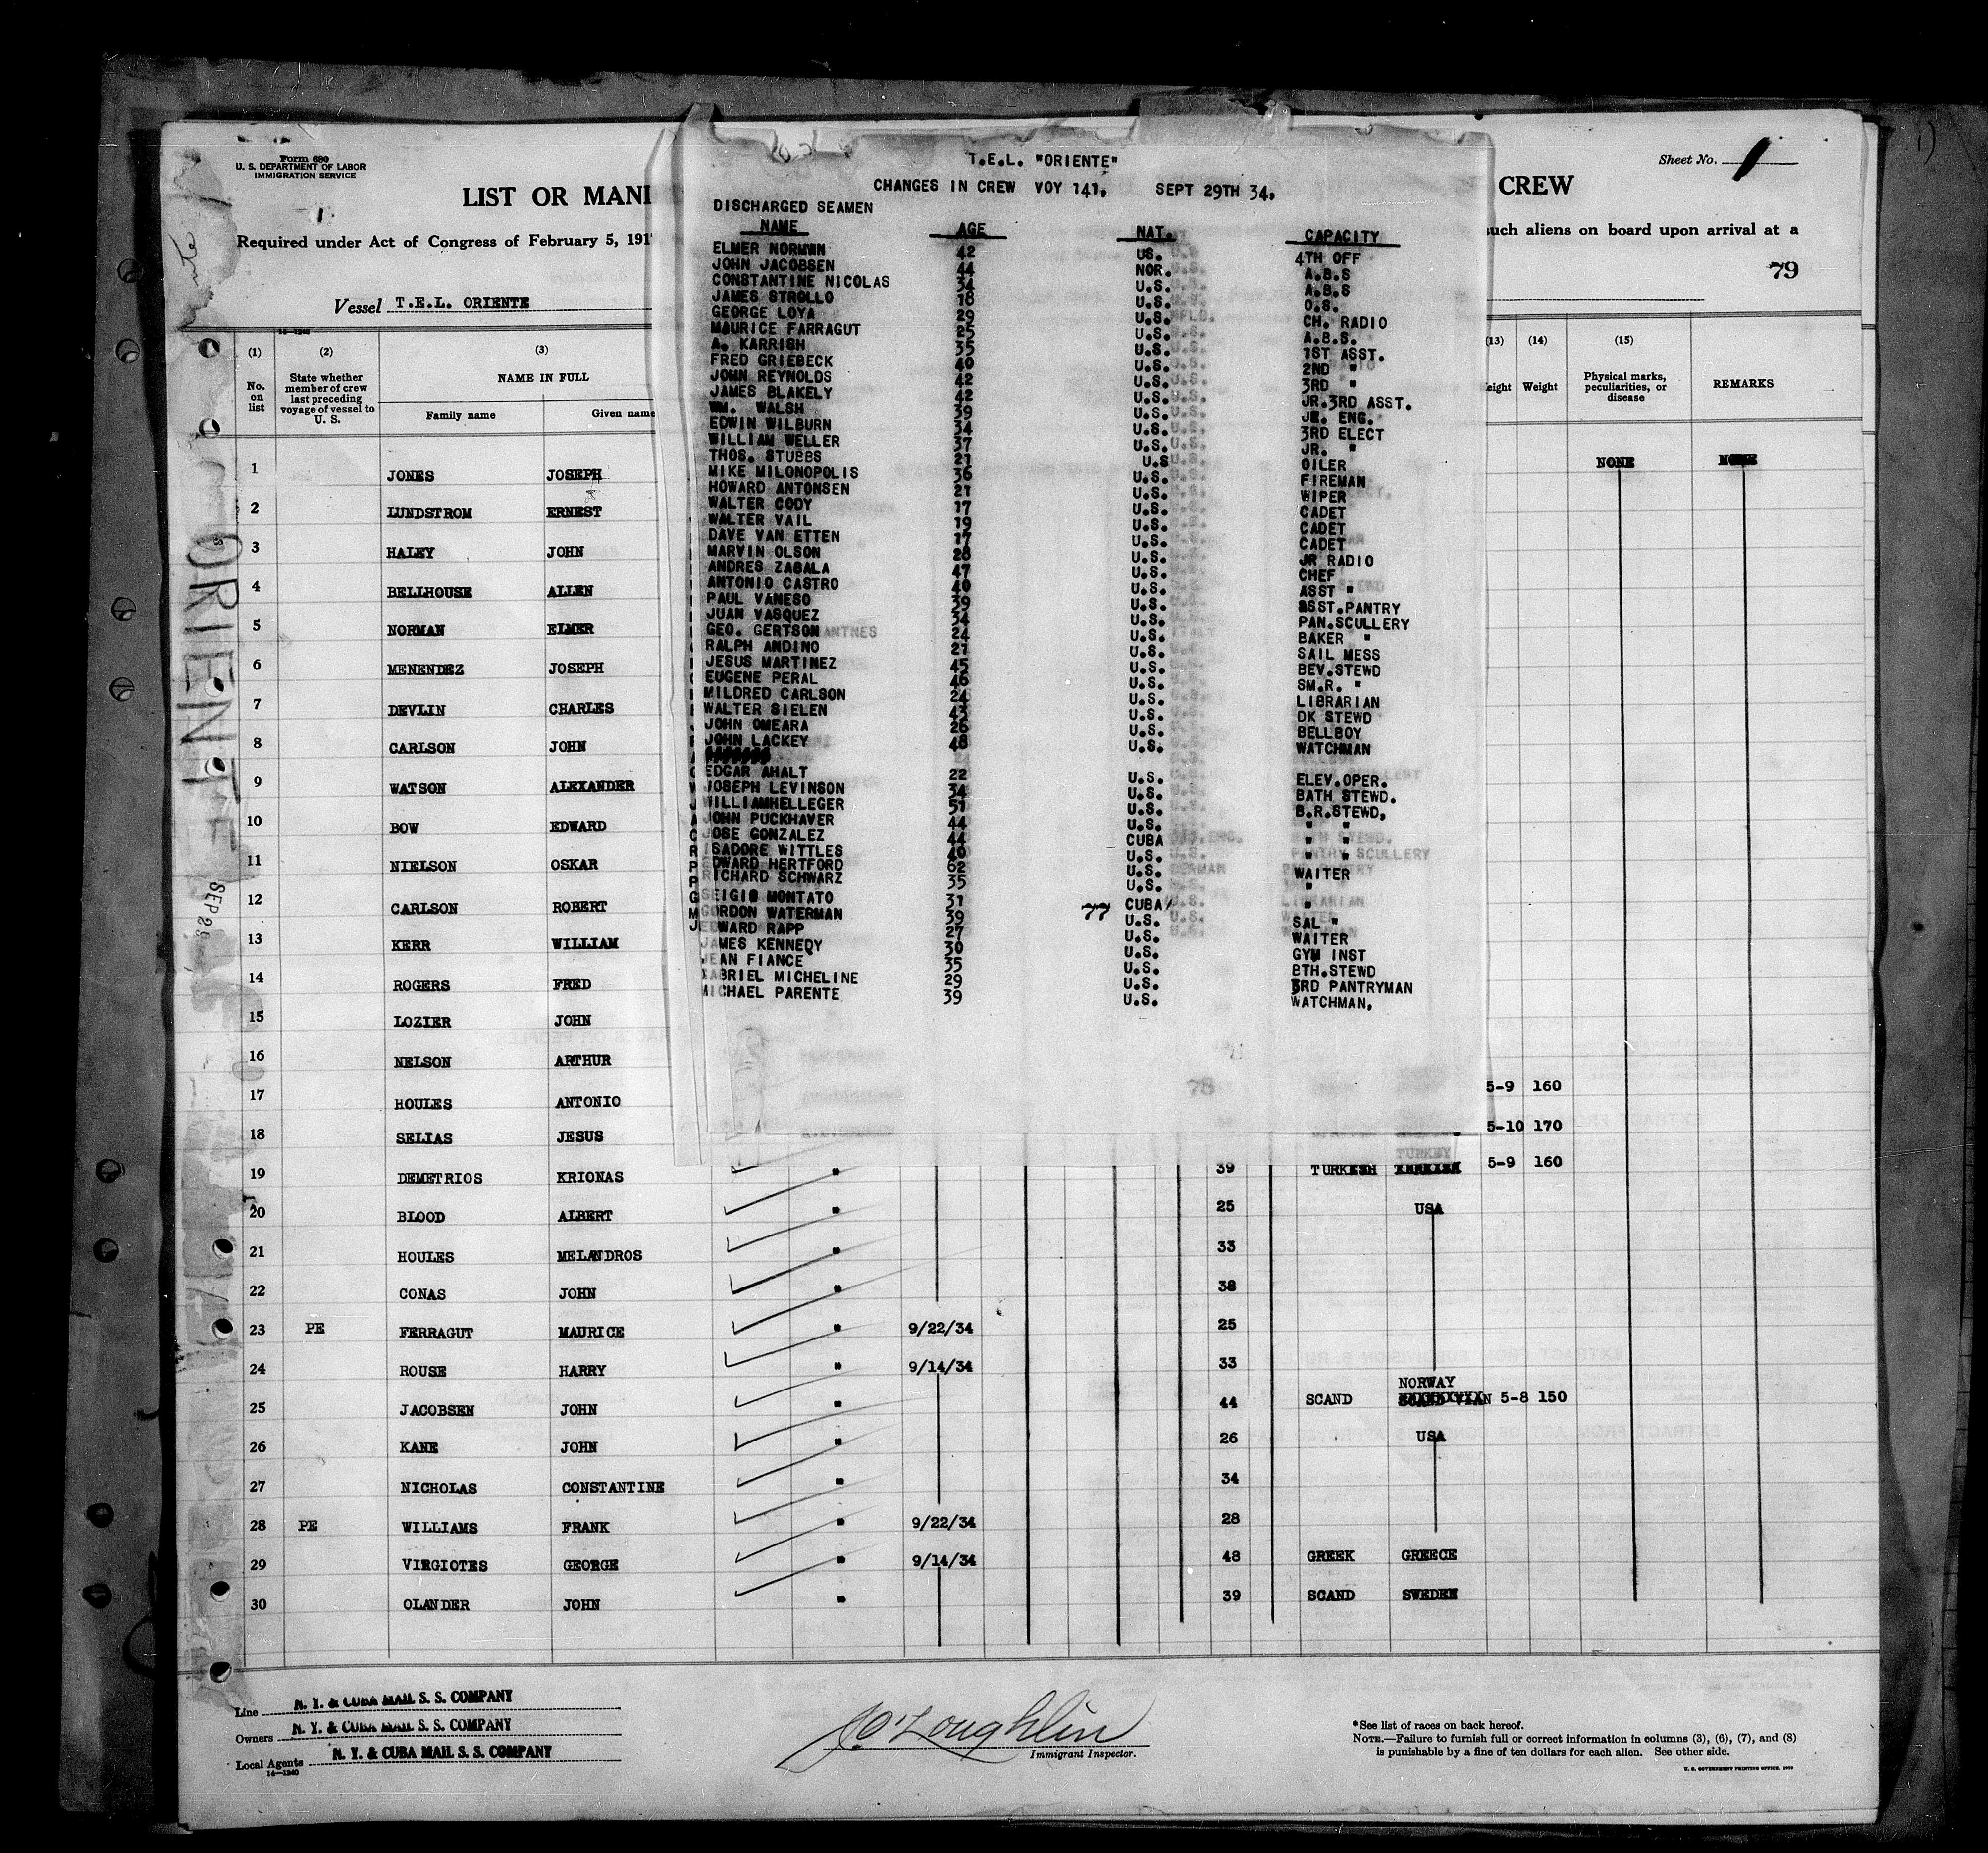 Form 680
U. S. DEPARTMENT OF LABOR
IMMIGRATION SERVICE
LIST OR MANI
CREW
Sheet No. 1
Required under Act of Congress of February 5, 191
such aliens on board upon arrival at a
79
Vessel T.E.L. ORIENTE
T.E.L. "ORIENTE"
CHANGES IN CREW VOY 141, SEPT 29TH 34,
DISCHARGED SEAMEN
NAME AGE NAT. CAPACITY
ELMER NORMAN 42 US. 4TH OFF
JOHN JACOBSEN 44 NOR. A.B.S
CONSTANTINE NICOLAS 34 U.S. A.B.S
JAMES STROLLO 18 U.S. O.S.
GEORGE LOYA 29 U.S. CH. RADIO
MAURICE FARRAGUT 25 U.S. A.B.S.
A. KARRISH 35 U.S. 1ST ASST.
FRED GRIEBECK 40 U.S. 2ND "
JOHN REYNOLDS 42 U.S. 3RD "
JAMES BLAKELY 42 U.S. JR.3RD ASST.
WM. WALSH 39 U.S. JR. ENG.
EDWIN WILBURN 34 U.S. 3RD ELECT
WILLIAM WELLER 37 U.S. JR. "
THOS. STUBBS 21 U.S OILER
MIKE MILONOPOLIS 36 U.S. FIREMAN
HOWARD ANTONSEN 21 U.S. WIPER
WALTER CODY 17 U.S. CADET
WALTER VAIL 19 U.S. CADET
DAVE VAN ETTEN 17 U.S. CADET
MARVIN OLSON 28 U.S. JR RADIO
ANDRES ZABALA 47 U.S. CHEF
ANTONIO CASTRO 40 U.S. ASST "
PAUL VANESO 39 U.S. ASST.PANTRY
JUAN VASQUEZ 34 U.S. PAN.SCULLERY
GEO. GERTSON 24 U.S. BAKER "
RALPH ANDINO 21 U.S. SAIL MESS
JESUS MARTINEZ 45 U.S. BEV.STEWD
EUGENE PERAL 46 U.S. SM.R. "
MILDRED CARLSON 24 U.S. LIBRARIAN
WALTER SIELEN 43 U.S. DK STEWD
JOHN OMEARA 26 U.S. BELLBOY
JOHN LACKEY 48 U.S. WATCHMAN
EDGAR AHALT 22 U.S. ELEV.OPER.
JOSEPH LEVINSON 34 U.S. BATH STEWD.
WILLIAMHELLEGER 51 U.S. B.R.STEWD,
JOHN PUCKHAVER 44 U.S. " "
JOSE GONZALEZ 44 CUBA " "
ISADORE WITTLES 40 U.S. " "
EDWARD HERTFORD 62 U.S. WAITER
RICHARD SCHWARZ 35 U.S. "
SEIGIO MONTATO 31 CUBA "
GORDON WATERMAN 39 77 U.S. SAL "
EDWARD RAPP 27 U.S. WAITER
JAMES KENNEDY 30 U.S. GYM INST
JEAN FIANCE 35 U.S. BTH.STEWD
GABRIEL MICHELINE 29 U.S. 3RD PANTRYMAN
MICHAEL PARENTE 39 U.S. WATCHMAN,
78
14—1240
(1) (2) (3) (13) (14) (15)
No. on list
State whether member of crew last preceding voyage of vessel to U. S.
NAME IN FULL
Family name Given name
eight Weight
Physical marks, peculiarities, or disease
REMARKS
1 JONES JOSEPH NONE NONE
2 LUNDSTROM ERNEST
3 HALEY JOHN
4 BELLHOUSE ALLEN
5 NORMAN ELMER
6 MENENDEZ JOSEPH
7 DEVLIN CHARLES
8 CARLSON JOHN
9 WATSON ALEXANDER
10 BOW EDWARD
11 NIELSON OSKAR
12 CARLSON ROBERT
13 KERR WILLIAM
14 ROGERS FRED
15 LOZIER JOHN
16 NELSON ARTHUR
17 HOULES ANTONIO 5-9 160
18 SELIAS JESUS 5-10 170
19 DEMETRIOS KRIONAS " 39 TURKISH TURKEY 5-9 160
20 BLOOD ALBERT " 25 USA
21 HOULES MELANDROS " 33
22 CONAS JOHN " 38
23 PE FERRAGUT MAURICE " 9/22/34 25
24 ROUSE HARRY " 9/14/34 33
25 JACOBSEN JOHN " 44 SCAND NORWAY 5-8 150
26 KANE JOHN " 26 USA
27 NICHOLAS CONSTANTINE " 34
28 PE WILLIAMS FRANK " 9/22/34 28
29 VIRGIOTES GEORGE " 9/14/34 48 GREEK GREECE
30 OLANDER JOHN " 39 SCAND SWEDEN
ORIENTE
SEP 29
Line N. Y. & CUBA MAIL S. S. COMPANY
Owners N. Y. & CUBA MAIL S. S. COMPANY
Local Agents N. Y. & CUBA MAIL S. S. COMPANY
14—1240
McLoughlin
Immigrant Inspector.
* See list of races on back hereof.
NOTE.—Failure to furnish full or correct information in columns (3), (6), (7), and (8)
is punishable by a fine of ten dollars for each alien. See other side.
U. S. GOVERNMENT PRINTING OFFICE